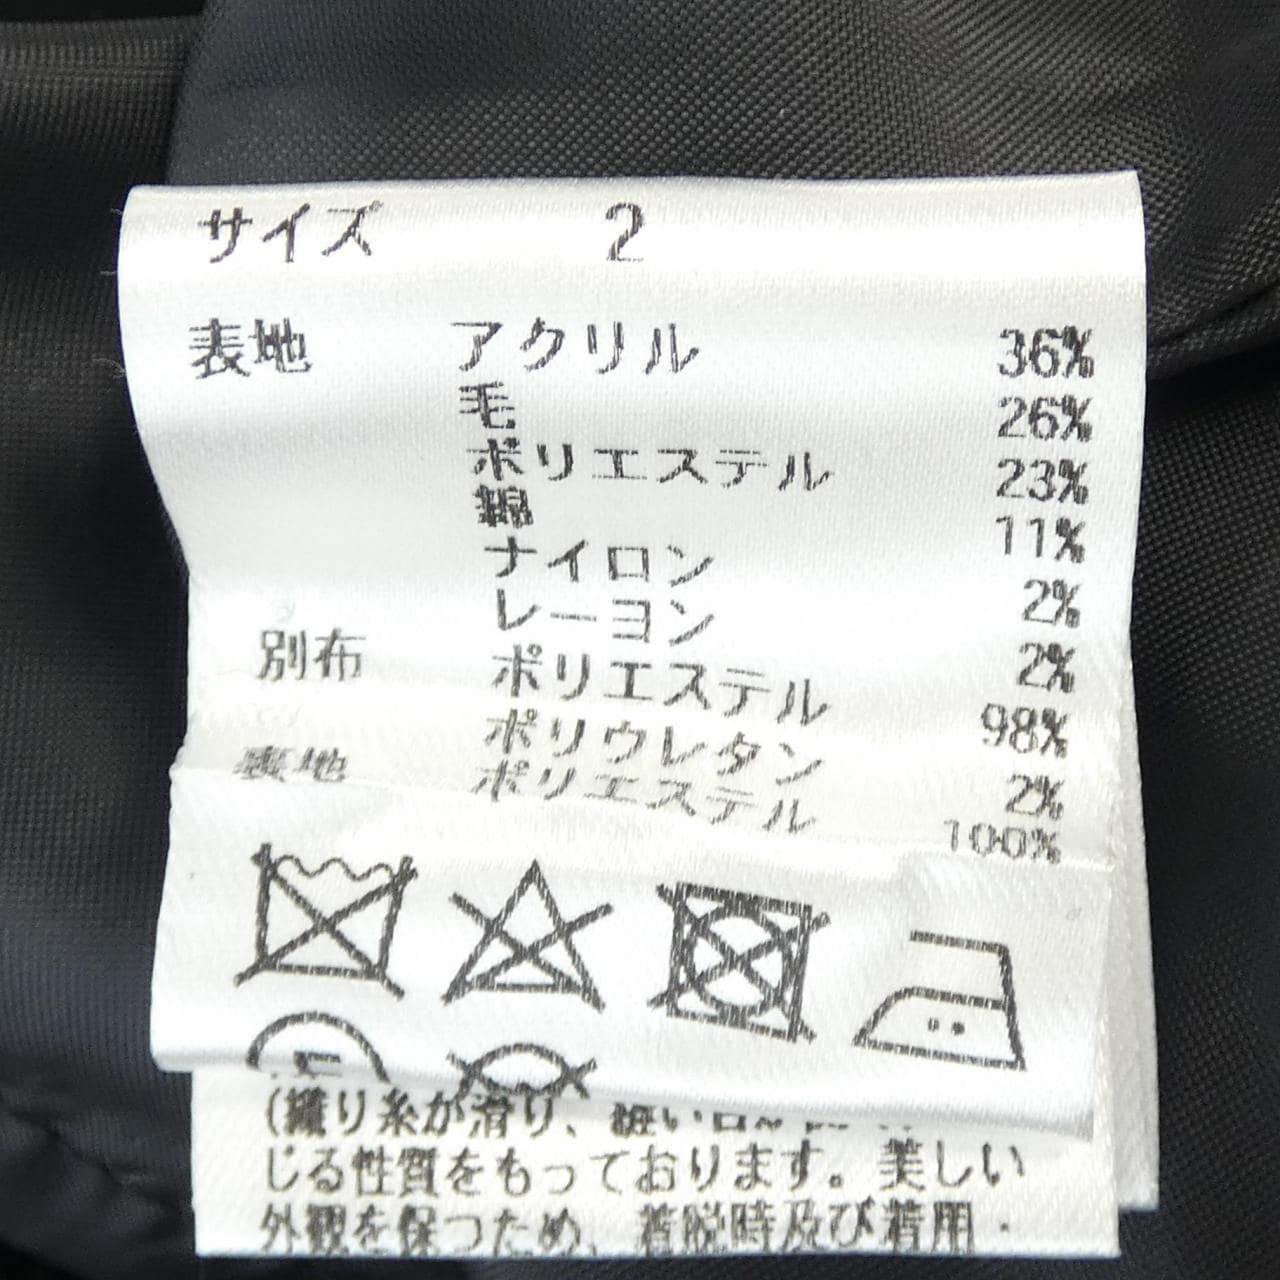 サイズ 2
表地 アクリル 36%
毛 26%
ポリエステル 23%
綿 11%
ナイロン 2%
レーヨン 2%
別布 ポリエステル 98%
ポリウレタン 2%
表地 ポリエステル 100%
(織り糸が滑り、縫い目
じる性質をもっております。美しい
外観を保つため、着脱時及び着用・